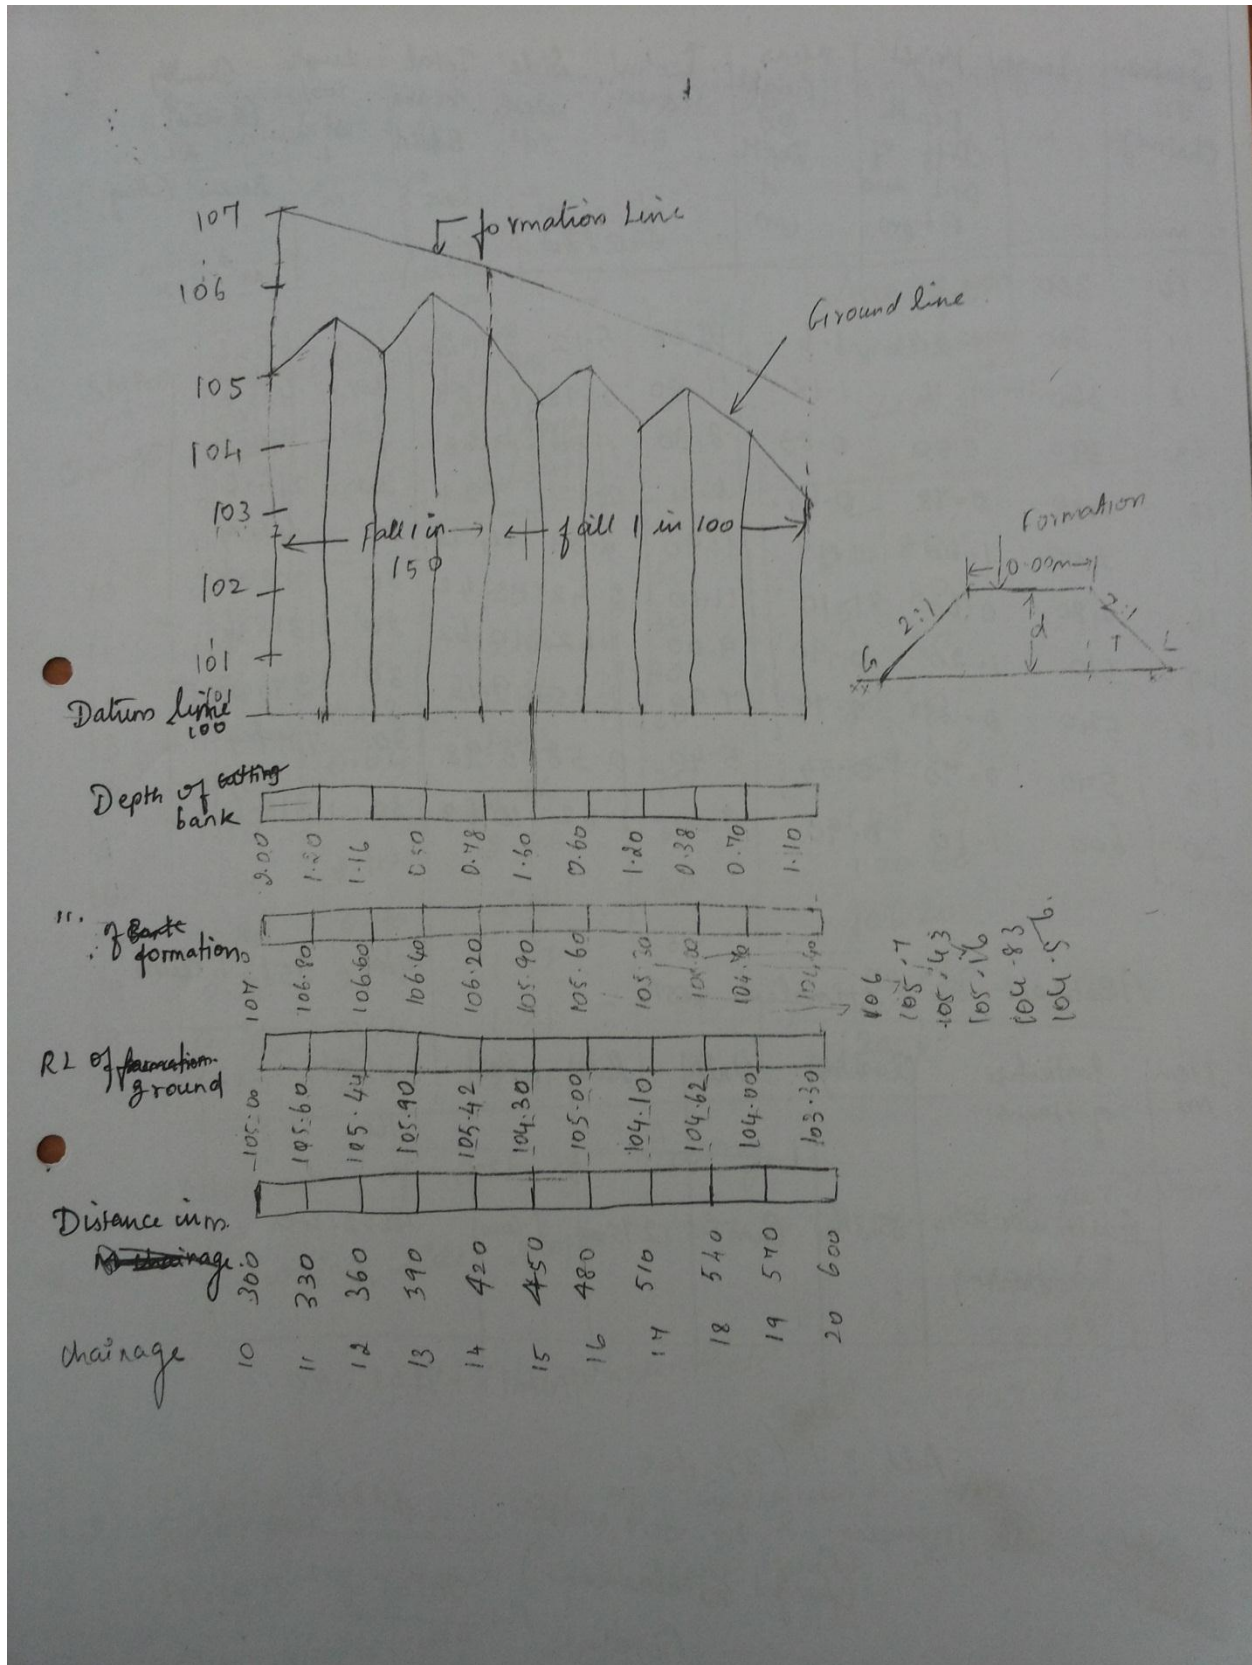 107
106
105
104
103
102
101
formation Line
Ground line
Fall 1 in 150
fall 1 in 100
Formation
10.00m
2:1
2:1
d
G
T
L
Datum line
100
Depth of cutting
bank
2.00 1.20 1.16 0.50 0.78 1.60 0.60 1.20 0.38 0.70 1.10
". of Bank
formations
107. 106.80 106.60 106.40 106.20 105.90 105.60 105.30 105.00 104.70 104.40
106
105.7
105.43
105.16
104.83
104.56.
RL of formation
ground
105.00 105.60 105.44 105.90 105.42 104.30 105.00 104.10 104.62 104.00 103.30
Distance in m.
chainage.
300 330 360 390 420 450 480 510 540 570 600
chainage 10 11 12 13 14 15 16 17 18 19 20